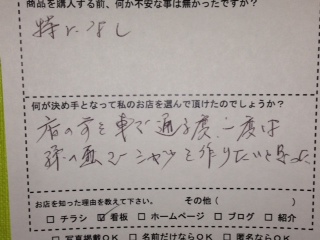 商品を購入する前、何か不安な事は無かったですか？
特になし
何が決め手となって私のお店を選んで頂けたのでしょうか？
店の前を車で通る度、一度は
孫の画でシャツを作りたいと思った
お店を知った理由を教えて下さい。 その他（ ）
□ チラシ ☑ 看板 □ ホームページ □ ブログ □ 紹介
□ 写真掲載ＯＫ □ 名前だけならＯＫ □ 匿名ならＯＫ